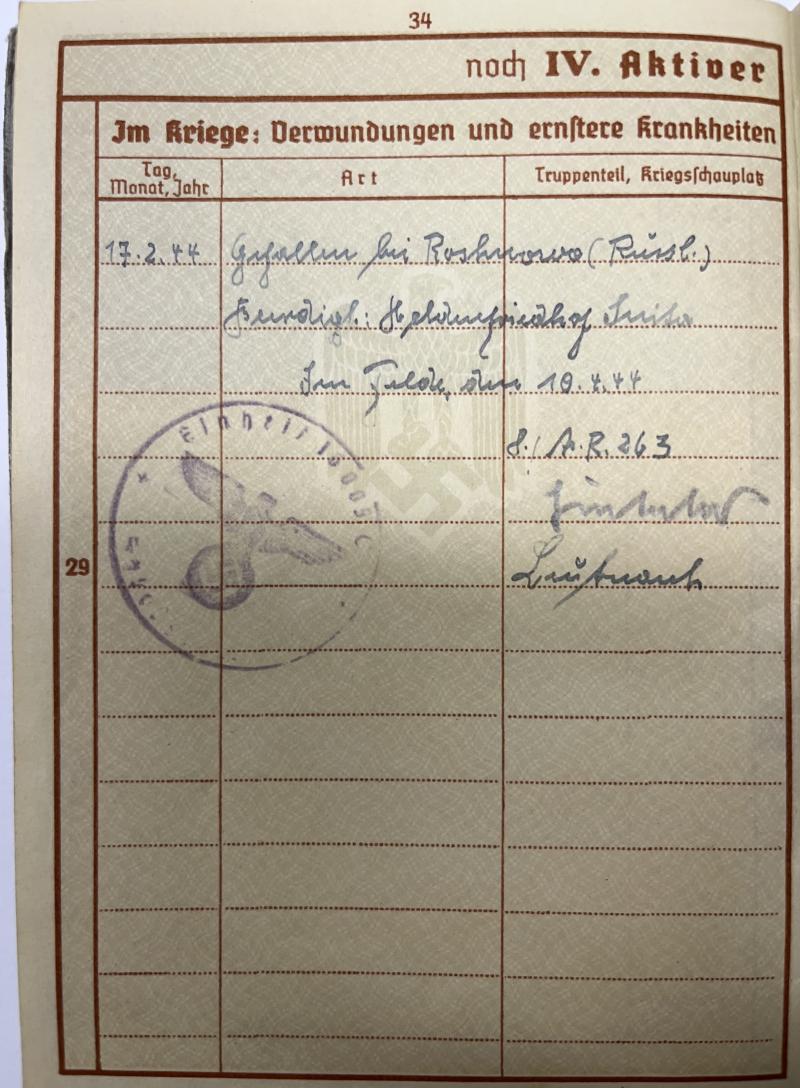 34
noch IV. Aktiver
Im Kriege: Verwundungen und ernstere Krankheiten
Tag, Monat, Jahr
Art
Truppenteil, Kriegsschauplatz
17.2.44 Gefallen bei Roshnowo (Russl.)
Heldenfriedhof
Im Felde, den 19.4.44
8./A.R. 263
Leutnant
29
Einheit